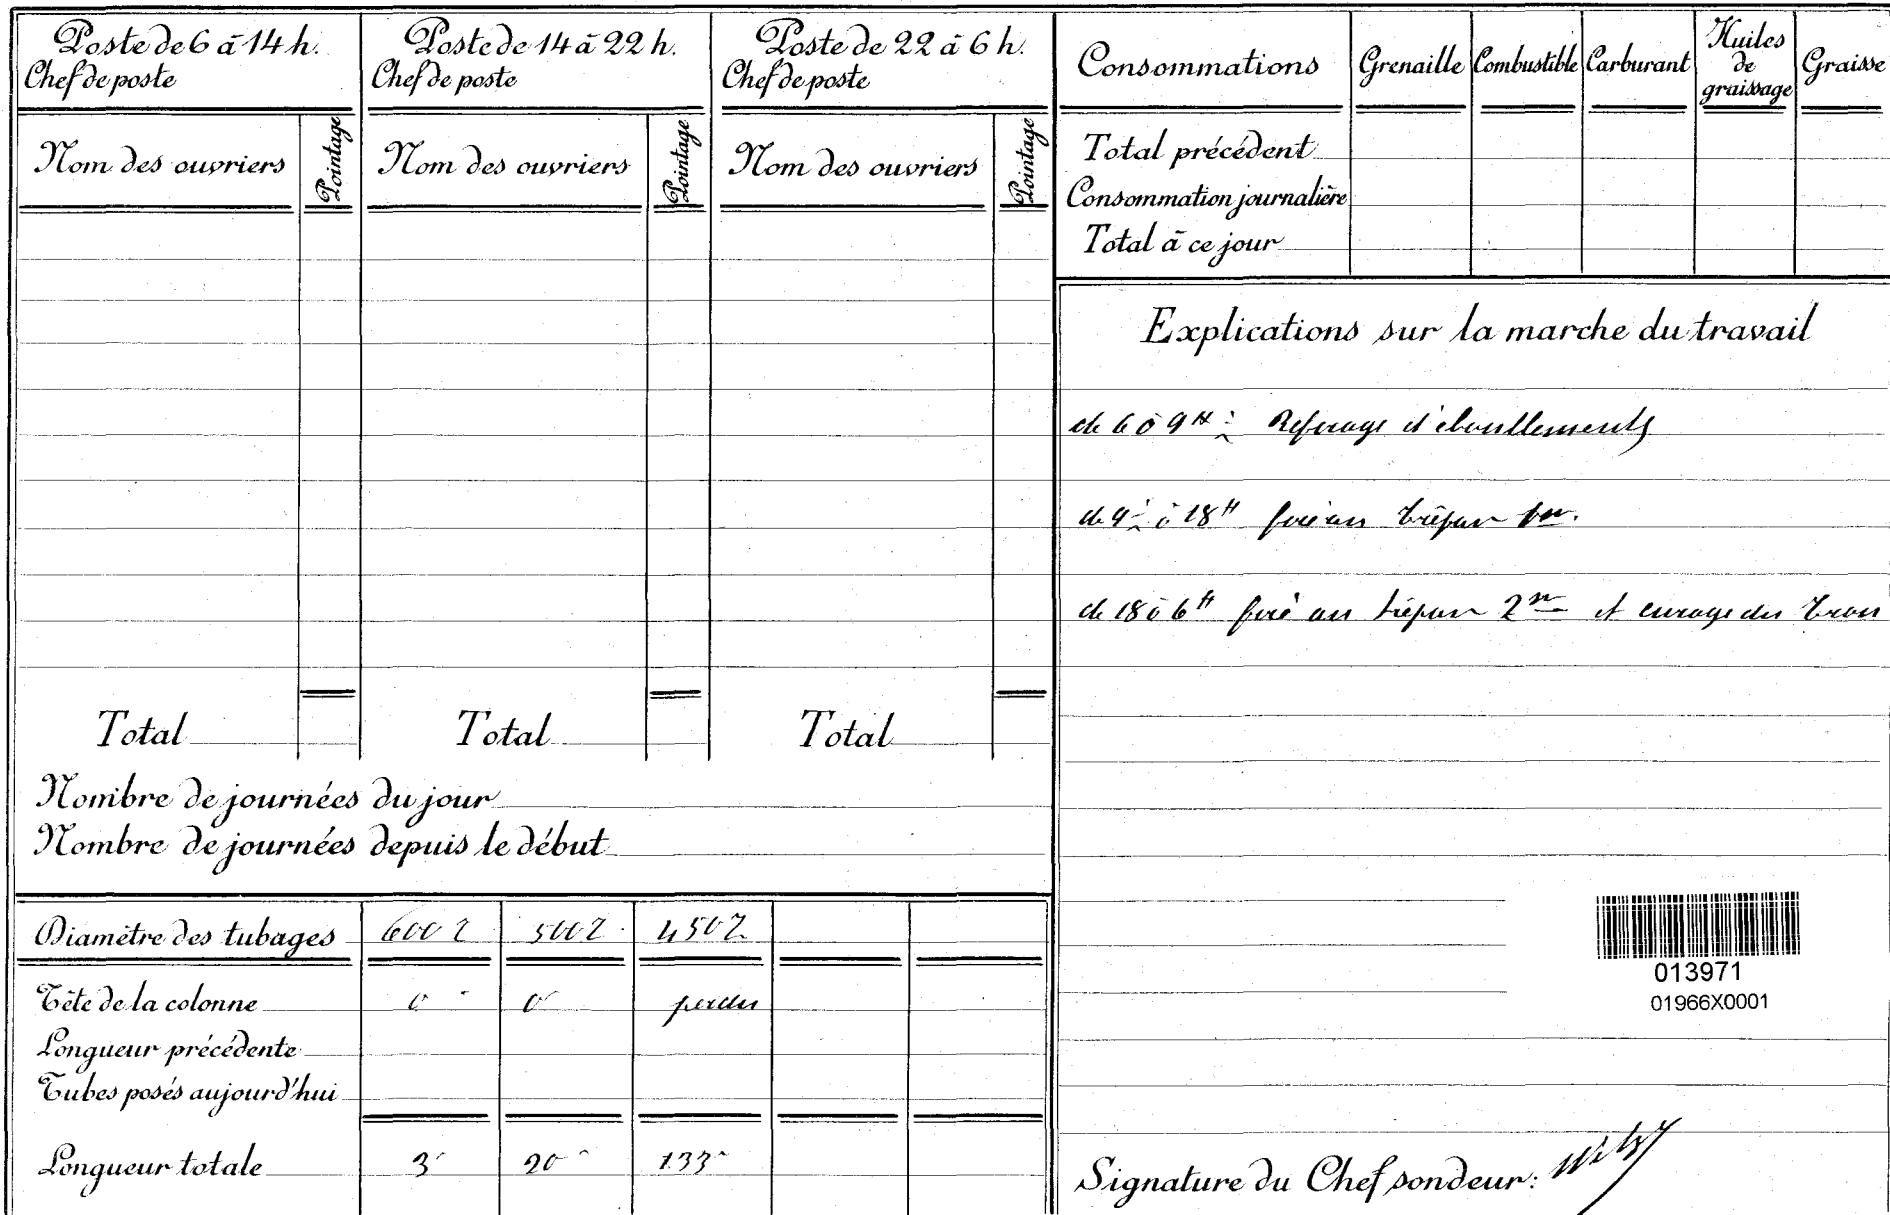 Poste de 6 à 14 h.
Chef de poste
Nom des ouvriers
Pointage
Total
Poste de 14 à 22 h.
Chef de poste
Nom des ouvriers
Pointage
Total
Poste de 22 à 6 h.
Chef de poste
Nom des ouvriers
Pointage
Total
Nombre de journées du jour
Nombre de journées depuis le début
Diamètre des tubages 600 500 450
Tête de la colonne 0 0 perdu
Longueur précédente
Tubes posés aujourd'hui
Longueur totale 3 20 133
Consommations Grenaille Combustible Carburant Huiles de graissage Graisse
Total précédent
Consommation journalière
Total à ce jour
Explications sur la marche du travail
de 6 à 9H Reforage d'éboullements
de 9 à 18H foré au trépan 1m.
de 18 à 6H foré au trépan 2m et curage du trou
013971
01966X0001
Signature du Chef sondeur: